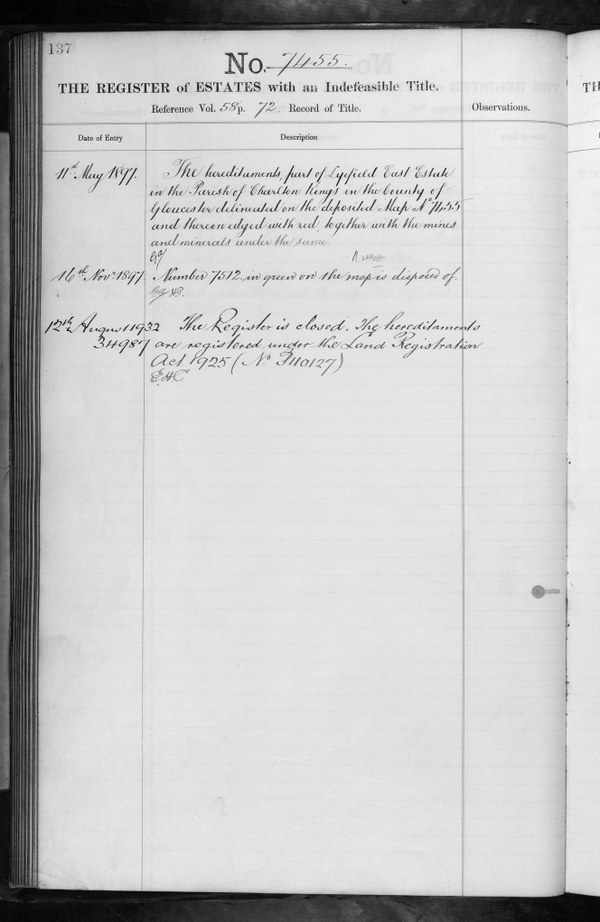 137
No. 7455.
THE REGISTER of ESTATES with an Indefeasible Title.
Reference Vol. 58 p. 72. Record of Title.
Observations.
Date of Entry
Description
11th May 1897.
The hereditaments, part of Lyefield East Estate
in the Parish of Charlton Kings in the County of
Gloucester delineated on the deposited Map No 7455
and thereon edged with red, together with the mines
and minerals under the same
16th Novr 1897.
Number 7512 in green on the map is disposed of.
12th August 1932
The Register is closed. The hereditaments
34987
are registered under the Land Registration
Act 1925 (No. 340127)
E.H.C